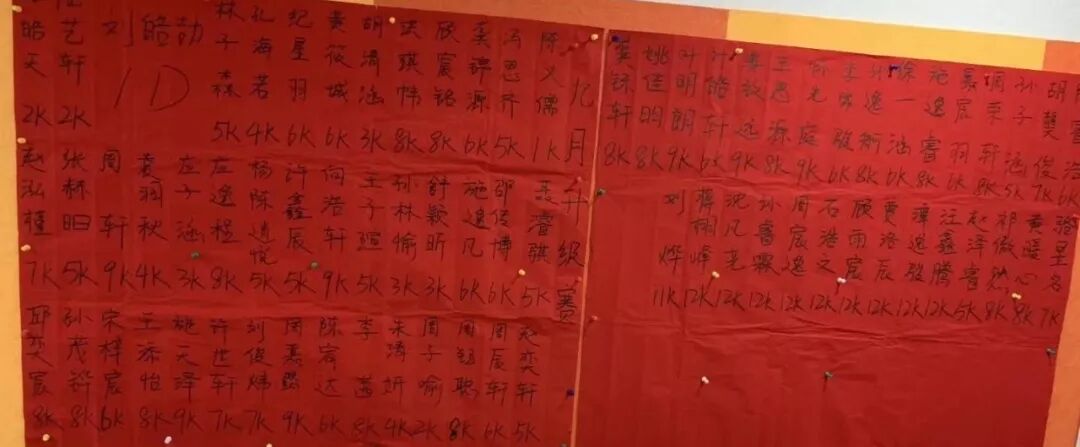 九月升级赛
陈义儒 1K
冯思齐 5K
龚锦源 6K
宸铭 8K
洪骐帏 8K
胡清涵 3K
黄筱城 6K
纪星羽 6K
孔海若 4K
林子森 5K
刘皓劼 1D
艺轩 2K
皓天 2K
聂濬骐 5K
邵俊博 6K
施逸凡 6K
舒颖昕 3K
孙林愉 3K
王子瑄 5K
向浩轩 9K
许鑫辰 5K
杨陈逍悦 5K
左逸程 8K
左子涵 3K
袁羽秋 4K
周轩 9K
张林 5K
赵泓禧 7K
赵奕轩 5K
周辰轩 6K
周聪 8K
周子喻 2K
朱清妍 4K
李菡 8K
陈宥达 6K
周嘉懿 9K
刘俊炜 7K
许世轩 7K
姚天泽 9K
王添怡 8K
宋梓宸 6K
孙茂铧 8K
邱奕宸 8K
胡 6K
俊 7K
孙子涵 5K
栗轩 8K
宸羽 6K
施逸睿 8K
徐一涵 6K
逸衡 8K
骏 6K
光庭 9K
王思源 8K
远 9K
叶皓轩 6K
叶明朗 9K
姚佳昀 8K
龚铄轩 8K
骆星名 7K
黄暖心 8K
祁微然 8K
赵泽睿 5K
汪鑫腾 12K
谭逸骏 12K
贾洛辰 12K
顾雨宸 12K
石浩之 12K
周宸逸 12K
孙睿霖 12K
沈凡尧 12K
蒋栩峰 12K
刘烨 11K